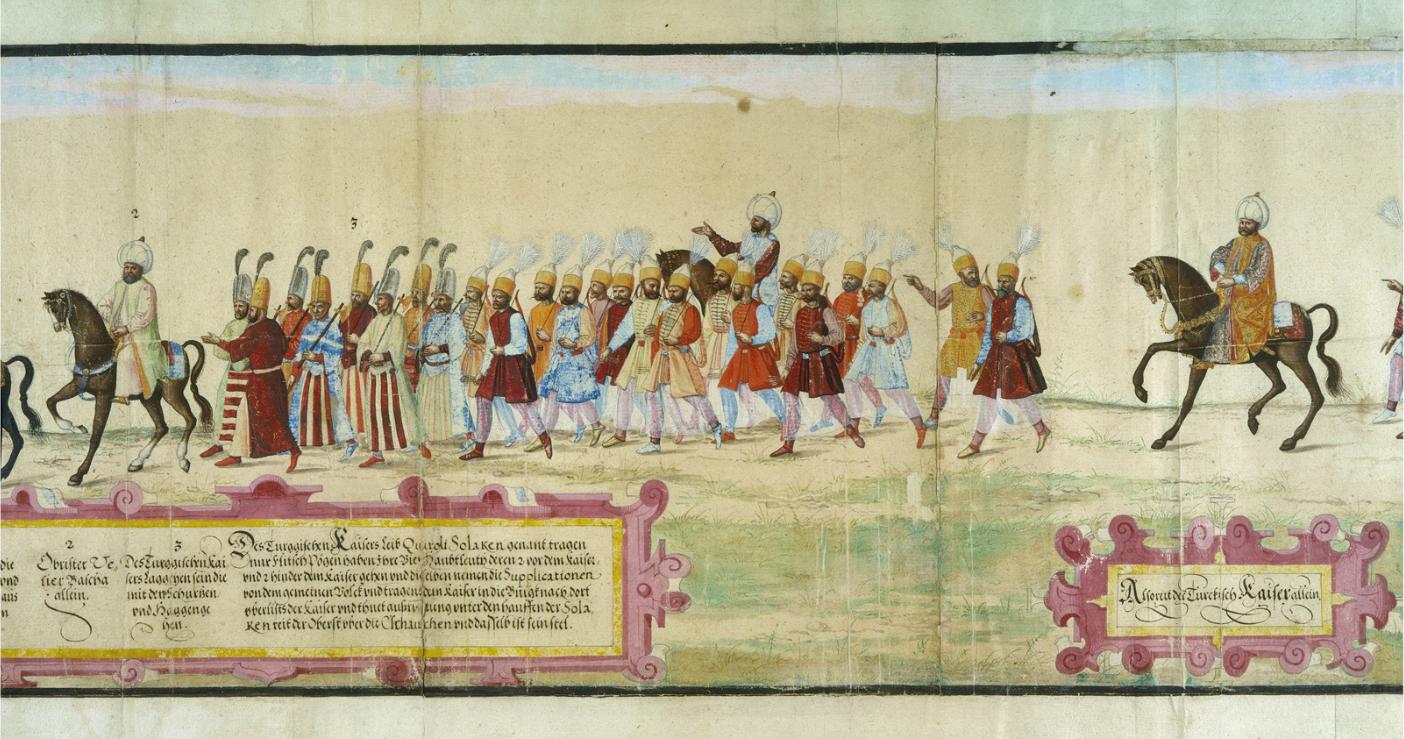 2
3
die
und
aus
n
2
Obrister Ve„
zier Bascha
allein.
3
Des Türggischen Kai„
sers Laggeyen sein die
mit den Schurtzen
und
hen.
Des Türggischen Kaisers Leib Quardi Solaken genant tragen
nur Flitsch Pögen haben Ihre Vier Haubtleuth deren 2 vor dem Kaiser
und 2 hinder dem Kaiser gehen und dieselben nemen die Supplicationen
von dem gemeinen Volck und tragens dem Kaiser in die nach dort
der Kaiser und thuet unter den hauffen der Sola„
ken reit der Oberst über die Tschauschen und dasselb ist sein stel.
Also reit der Türckisch Kaiser allein,